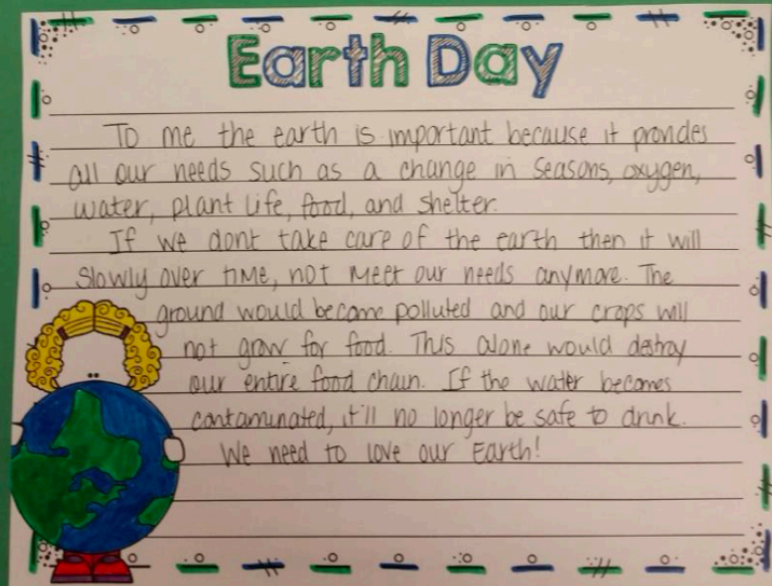 Earth Day
To me the earth is important because it provides
all our needs such as a change in seasons, oxygen,
water, plant life, food, and shelter.
If we dont take care of the earth then it will
slowly over time, not meet our needs anymore. The
ground would become polluted and our crops will
not grow for food. This alone would destroy
our entire food chain. If the water becomes
contaminated, it'll no longer be safe to drink.
We need to love our Earth!